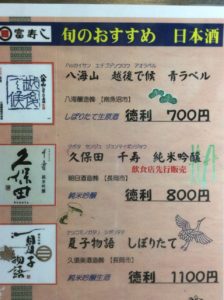 富寿し 旬のおすすめ 日本酒
ハッカイサン エチゴデソウロウ アオラベル
八海山 越後で候 青ラベル
八海醸造㈱ 【南魚沼市】
しぼりたて生原酒 徳利 700円
クボタ センジュ ジュンマイギンジョウ
久保田 千寿 純米吟醸
飲食店先行販売
朝日酒造㈱ 【長岡市】
純米吟醸 徳利 800円
久保田
ナツコモノガタリ シボリタテ
夏子物語 しぼりたて
久須美酒造㈱ 【長岡市】
純米吟醸生酒 徳利 1100円
夏子物語